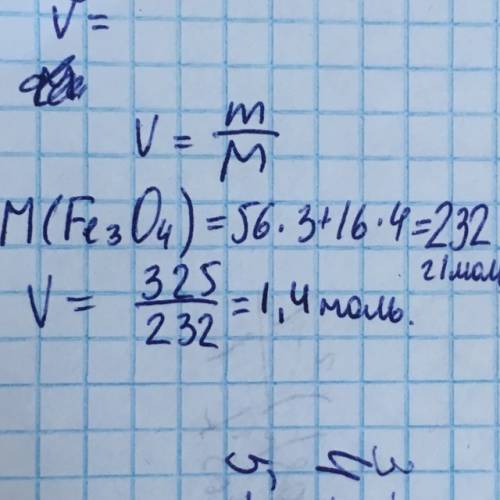 V =
V = m/M
M(Fe₃O₄) = 56 · 3 + 16 · 4 = 232 г/мол
V = 325/232 = 1,4 моль.